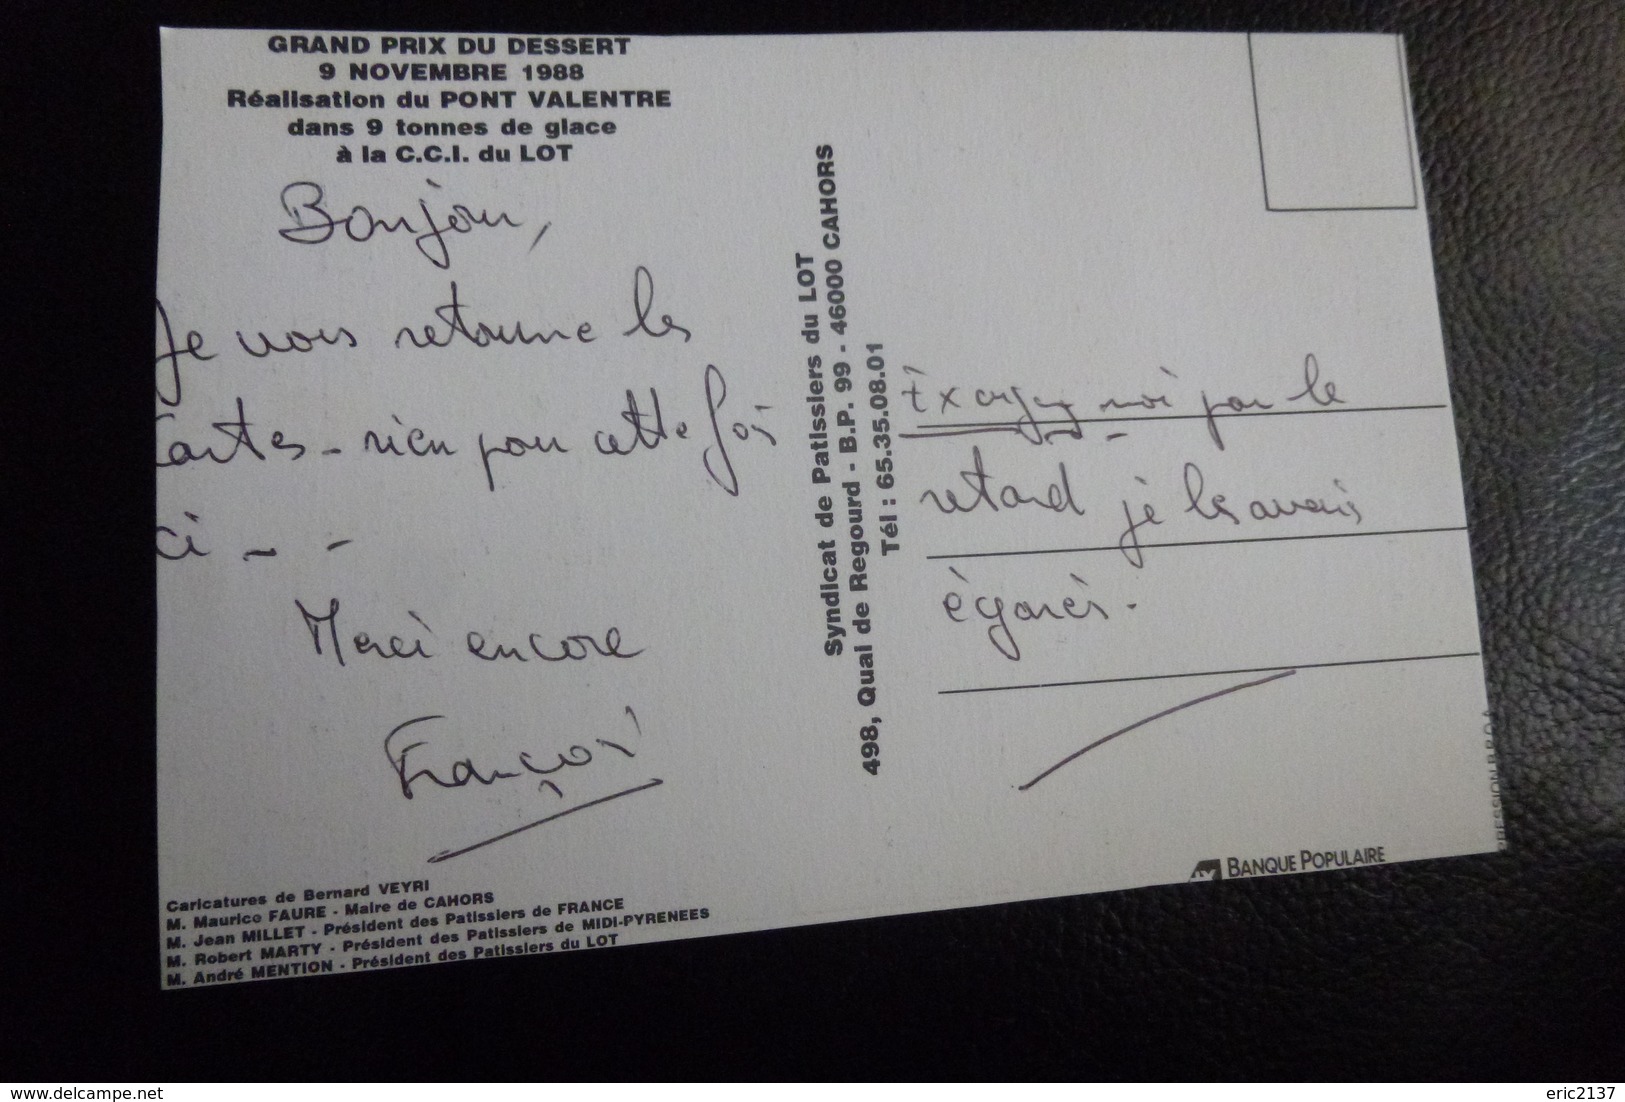 GRAND PRIX DU DESSERT
9 NOVEMBRE 1988
Réalisation du PONT VALENTRE
dans 9 tonnes de glace
à la C.C.I. du LOT
Bonjour,
Je vous retourne les
Cartes - rien pour cette fois
ci - -
Merci encore
François
Caricatures de Bernard VEYRI
M. Maurice FAURE - Maire de CAHORS
M. Jean MILLET - Président des Patissiers de FRANCE
M. Robert MARTY - Président des Patissiers de MIDI-PYRENEES
M. André MENTION - Président des Patissiers du LOT
Syndicat de Patissiers du LOT
498, Quai de Regourd - B.P. 99 - 46000 CAHORS
Tél : 65.35.08.01
moi pour le
retard je les avais
égarés.
BANQUE POPULAIRE
eric2137
http://www.delcampe.net